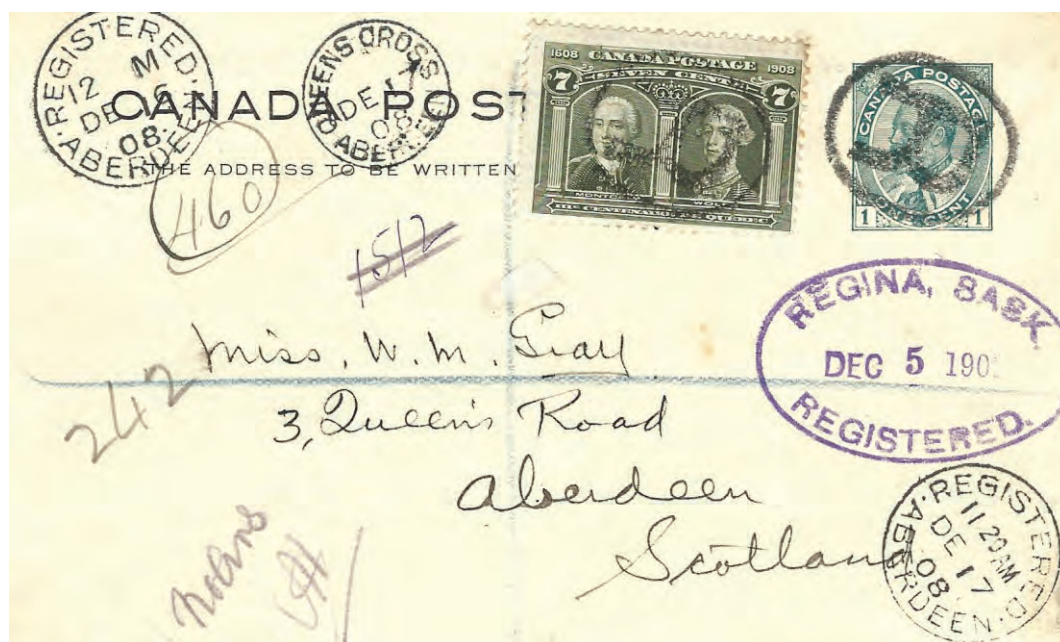 REGISTERED.
12 M
DE 16
08
ABERDEEN
QUEENS CROSS
DE 17
08
ABERDEEN
CANADA POST
THE ADDRESS TO BE WRITTEN
1608 CANADA POSTAGE 1908
SEVEN CENTS
7 7
MONTCALM WOLFE
IIIe CENTENAIRE DE QUÉBEC
CANADA POSTAGE
1 ONE CENT 1
460
1512
REGINA, SASK.
DEC 5 190
REGISTERED.
Miss. W. M. Gray
242
3, Queen's Road
Aberdeen
Scotland
REGISTERED
11 20 AM
DE 17
08
ABERDEEN